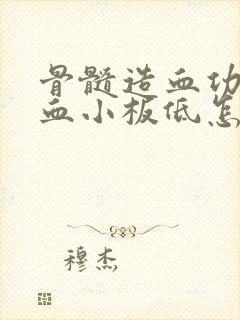 骨髓造血功
血小板低怎
穆杰